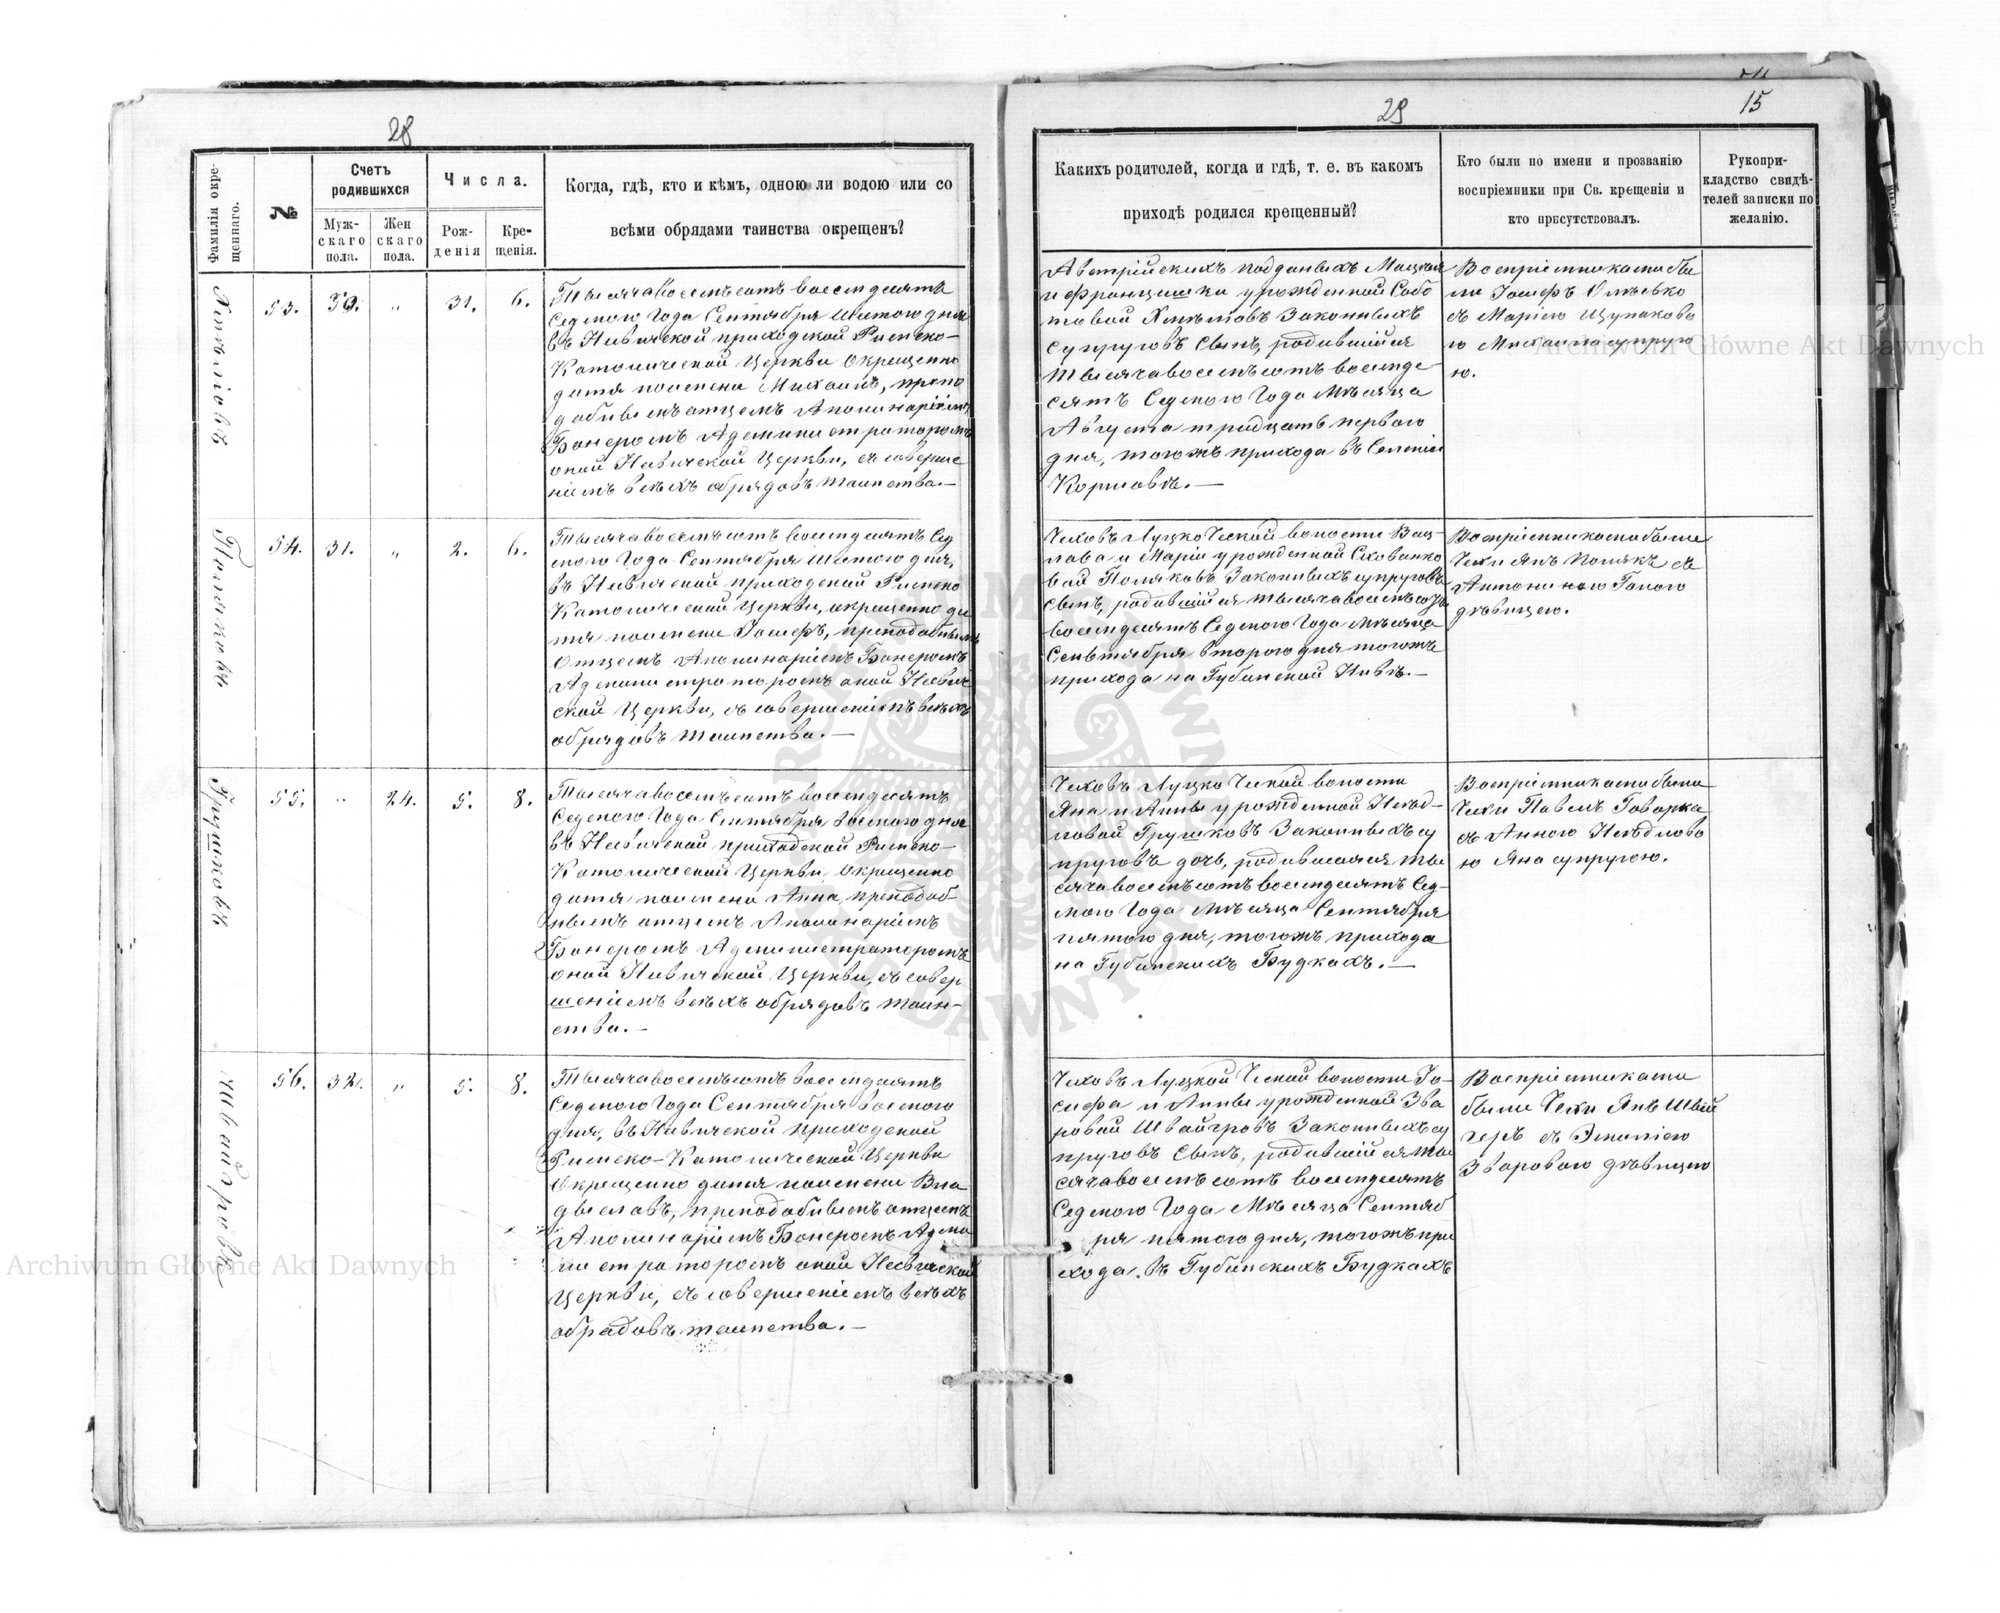 28
Фамилія окре-
щеннаго.
№
Счетъ
родившихся
Муж-
скаго
пола.
Жен
скаго
пола.
Числа.
Рож-
денія
Кре-
щенія.
Когда, гдѣ, кто и кѣмъ, одною ли водою или со
всѣми обрядами таинства окрещенъ?
53. 30. „ 31. 6.
Тысяча восемьсотъ восемдесятъ
Седмого Года Сентября Шестого дня
въ Несвичской приходской Римско-
Католической Церкви окрещенно
дитя по имени Михаилъ, препо
добнымъ отцемъ Аполинаріемъ
Бонеромъ Администраторомъ
оной Несвичской Церкви, съ соверше
ніемъ всѣхъ обрядовъ таинства.—
Поляковъ
54. 31. „ 2. 6.
Тысяча восемьсотъ восемдесятъ Сед
мого Года Сентября Шестого дня,
въ Несвичской приходской Римско
Католической Церкви, окрещенно ди
тя по имени Іосифъ, преподобнымъ
Отцемъ Аполинаріемъ Бонеромъ
Администраторомъ оной Несвич
ской Церкви, съ совершеніемъ всѣхъ
обрядовъ таинства.—
Грушковъ
55. „ 24. 5. 8.
Тысяча восемьсотъ восемдесятъ
Седмого Года Сентября Восмого дня
въ Несвичской приходской Римско-
Католической Церкви, окрещенно
дитя по имени Анна, преподоб-
нымъ отцемъ Аполинаріемъ
Бонеромъ Администраторомъ
оной Несвичской Церкви, съ совер
шеніемъ всѣхъ обрядовъ таин-
ства.—
Швайгровъ
56. 32. „ 5. 8.
Тысяча восемьсотъ восемдесятъ
Седмого Года Сентября Восмого
дня, въ Несвичской приходской
Римско-Католической Церкви
Окрещенно дитя по имени Вла
диславъ, преподобнымъ отцемъ
Аполинаріемъ Бонеромъ Адми
нистраторомъ оной Несвичской
Церкви, съ совершеніемъ всѣхъ
обрядовъ таинства.—
29
15
Какихъ родителей, когда и гдѣ, т. е. въ какомъ
приходѣ родился крещенный?
Кто были по имени и прозванію
воспріемники при Св. крещеніи и
кто присутствовалъ.
Рукопри-
кладство свидѣ-
телей записки по
желанію.
Австрійскихъ подданыхъ
и Францишки урожденной Собо
товой Законныхъ
супруговъ Сынъ, родившійся
тысяча восемьсотъ восемде
сятъ Седмого Года Мѣсяца
Августа тридцать первого
дня, тогожъ прихода въ Селеніи
Коршовѣ.—
Воспріемниками бы
ли Іосифъ
съ Маріею
ю Михаила супруго
ю.
Чеховъ Луцко Ческой волости Вац-
лава и Маріи урожденной
вой Поляковъ Законныхъ супруговъ
Сынъ, родившійся тысяча восемьсотъ
восемдесятъ Седмого Года Мѣсяца
Сентября второго дня тогожъ
прихода на Губинской Нивѣ.—
Воспріемниками были
Чехи Янъ Полякъ съ
Антониною Голою
дѣвицею.
Чеховъ Луцко Ческой волости
Яна и Анны урожденной Неѣд-
ловой Грушковъ Законныхъ су
пруговъ дочь, родившаяся ты
сяча восемьсотъ восемдесятъ Сед-
мого Года Мѣсяца Сентября
пятого дня, тогожъ прихода
на Губинскихъ Будкахъ.—
Воспріемниками были
Чехи Павелъ Говорка
съ Анною Неѣдлово
ю Яна супругою.
Чеховъ Луцкой Ческой волости Іо-
сифа и Анны урожденной Зва
ровой Швайгровъ Законныхъ су
пруговъ Сынъ, родившійся ты
сяча восемьсотъ восемдесятъ
Седмого Года Мѣсяца Сентяб
ря пятого дня, тогожъ при
хода. въ Губинскихъ Будкахъ
Воспріемниками
были Чехи Янъ Швай
геръ съ Эмиліею
Зваровою дѣвицею
Archiwum Główne Akt Dawnych
Archiwum Główne Akt Dawnych